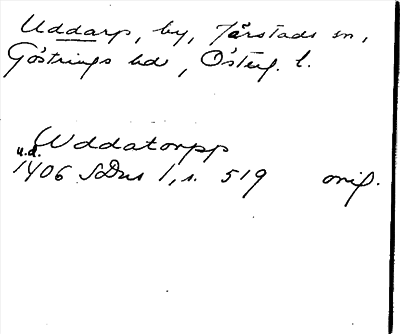 Uddarp, by, Järstads sn,
Göstrings hd, Österg. l.
Uddatorpp
u.d.
1406 SDns 1, s. 519 orig.